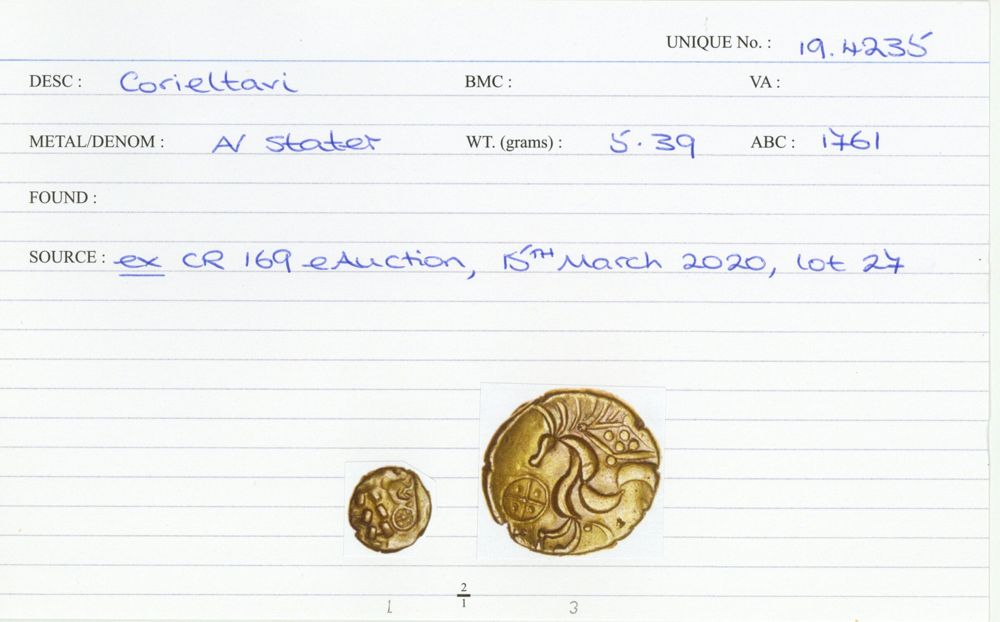 UNIQUE No. : 19.4235
DESC : Corieltavi BMC : VA :
METAL/DENOM : AV Stater WT. (grams) : 5.39 ABC : 1761
FOUND :
SOURCE : ex CR 169 eAuction, 15TH March 2020, lot 27
2
1
1 3